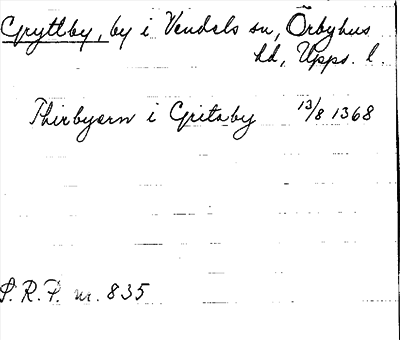 Gryttby, by i Vendels sn, Örbyhus
hd, Upps. l.
Thirbyorn i Gritaby 13/8 1368
S.R.P. nr. 835